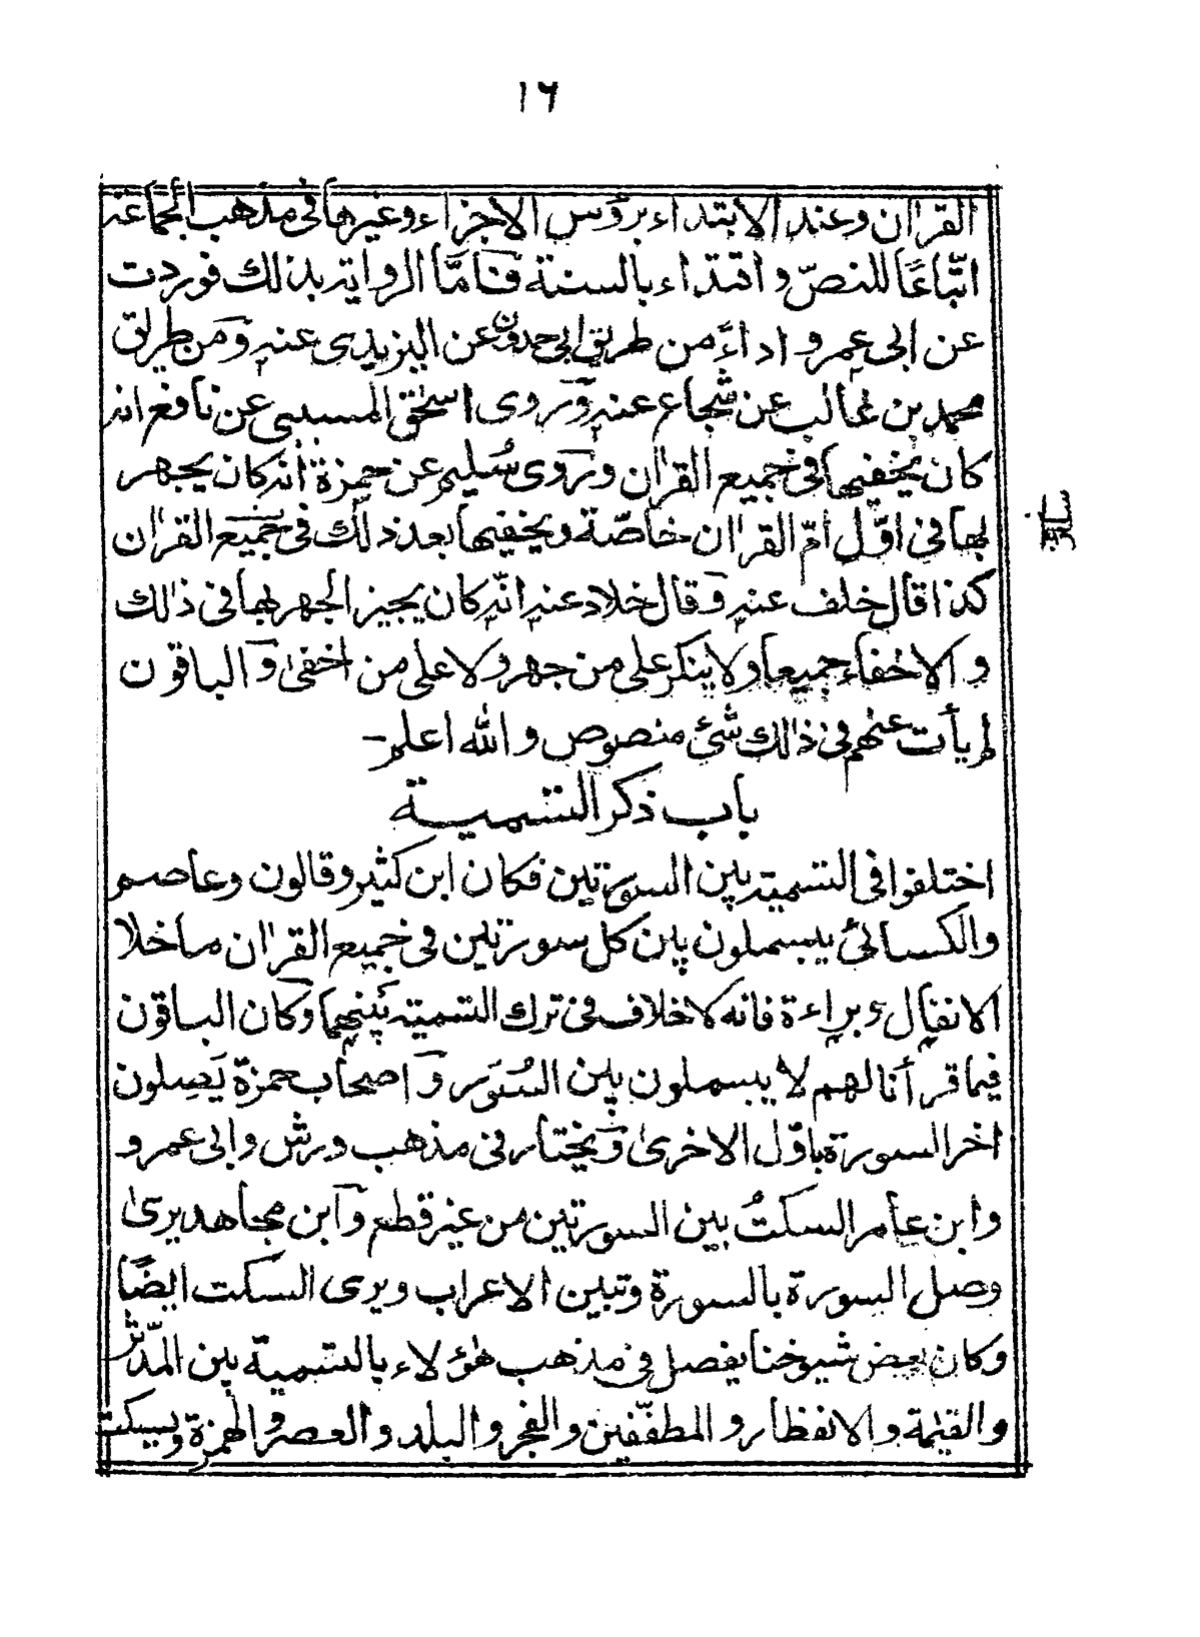 ١٦
القراٰن وعند الابتداء برؤس الاجزاء وغيرها فى مذهب الجماعة
اتّباعًا للنصّ و اقتداء بالسنة فَامَّا الرواية بذلك فوردت
عن ابى عمرو اداءً من طريق ابى حمدون عن اليزيدى عنه وَمن طريق
محمد بن غالب عن شجاع عنه وَروى اسحٰق المسيبى عن نافع انه
كان يخفيها فى جميع القراٰن وَروى سُليم عن حمزة انه كان يجهر
بها فى اوّل امّ القراٰن خاصّة ويخفيها بعد ذٰلك فى جميع القراٰن
كذا قال خلف عنه وَقال خلاد عنه انّه كان يجيز الجهر بها فى ذٰلك
و الاخفاء جميعا ولا ينكر على من جهر ولا على من اخفىٰ وَالباقون
لم يأت عنهم فى ذٰلك شئ منصوص و الله اعلم-
باب ذكر التسمية
اختلفوا فى التسمية بين السورتين فكان ابن كثير وقالون وعاصم
والكسائىُ يبسملون بين كل سورتين فى جميع القراٰن ماخلا
الانفال وبراءة فانه لاخلاف فى ترك التسمية بَينهما وَكان الباقون
فيما قرأنا لهم لا يبسملون بين السُوَر وَاصحاب حمزة يَصِلون
اٰخر السورة باوّل الاخرىٰ وَيختار فى مذهب ورش وابى عمرو
وابن عامر السكتُ بين السورتين من غير قطع وَابن مجاهد يرىٰ
وصل السورة بالسورة وتبين الاعراب ويرى السكت ايضًا
وكان بعض شيوخنا يفصل فى مذهب هٰؤلاء بالتسمية بين المدّثر
والقيٰمة والانفطار و المطفّفين والفجر و البلد والعصر والهمزة ويسكت